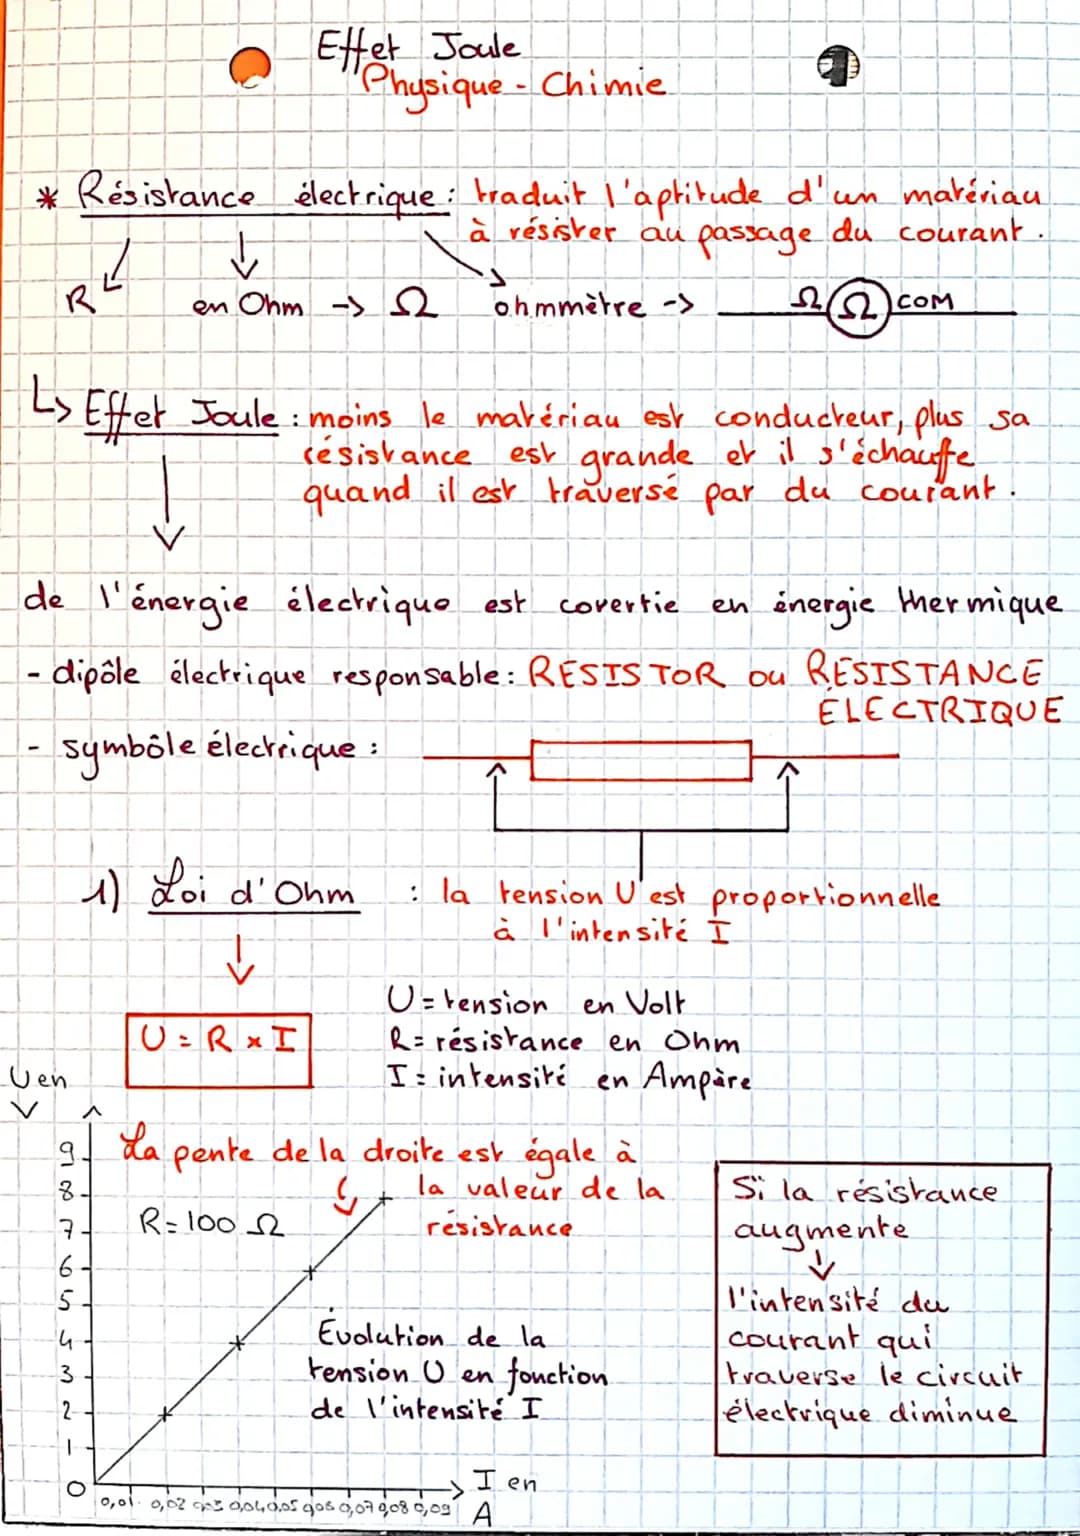 Effet Joule
Physique - Chimie
* Résistance électrique : traduit l'aptitude d'un matériau
à résister au passage du courant.
R en Ohm -> Ω ohmmètre -> Ω Ω COM
↳ Effet Joule : moins le matériau est conducteur, plus sa
résistance est grande et il s'échauffe
quand il est traversé par du courant.
de l'énergie électrique est covertie en énergie thermique
- dipôle électrique responsable : RESISTOR ou RESISTANCE
ÉLECTRIQUE
- symbôle électrique :
1) Loi d'Ohm : la tension U est proportionnelle
à l'intensité I
U = R x I
U = tension en Volt
R = résistance en Ohm
I = intensité en Ampère
U en
V
La pente de la droite est égale à
la valeur de la
résistance
R = 100 Ω
9
8
7
6
5
4
3
2
1
0
Évolution de la
tension U en fonction
de l'intensité I
0,01 0,02 0,03 0,04 0,05 0,06 0,07 0,08 0,09
I en
A
Si la résistance
augmente
l'intensité du
courant qui
traverse le circuit
électrique diminue